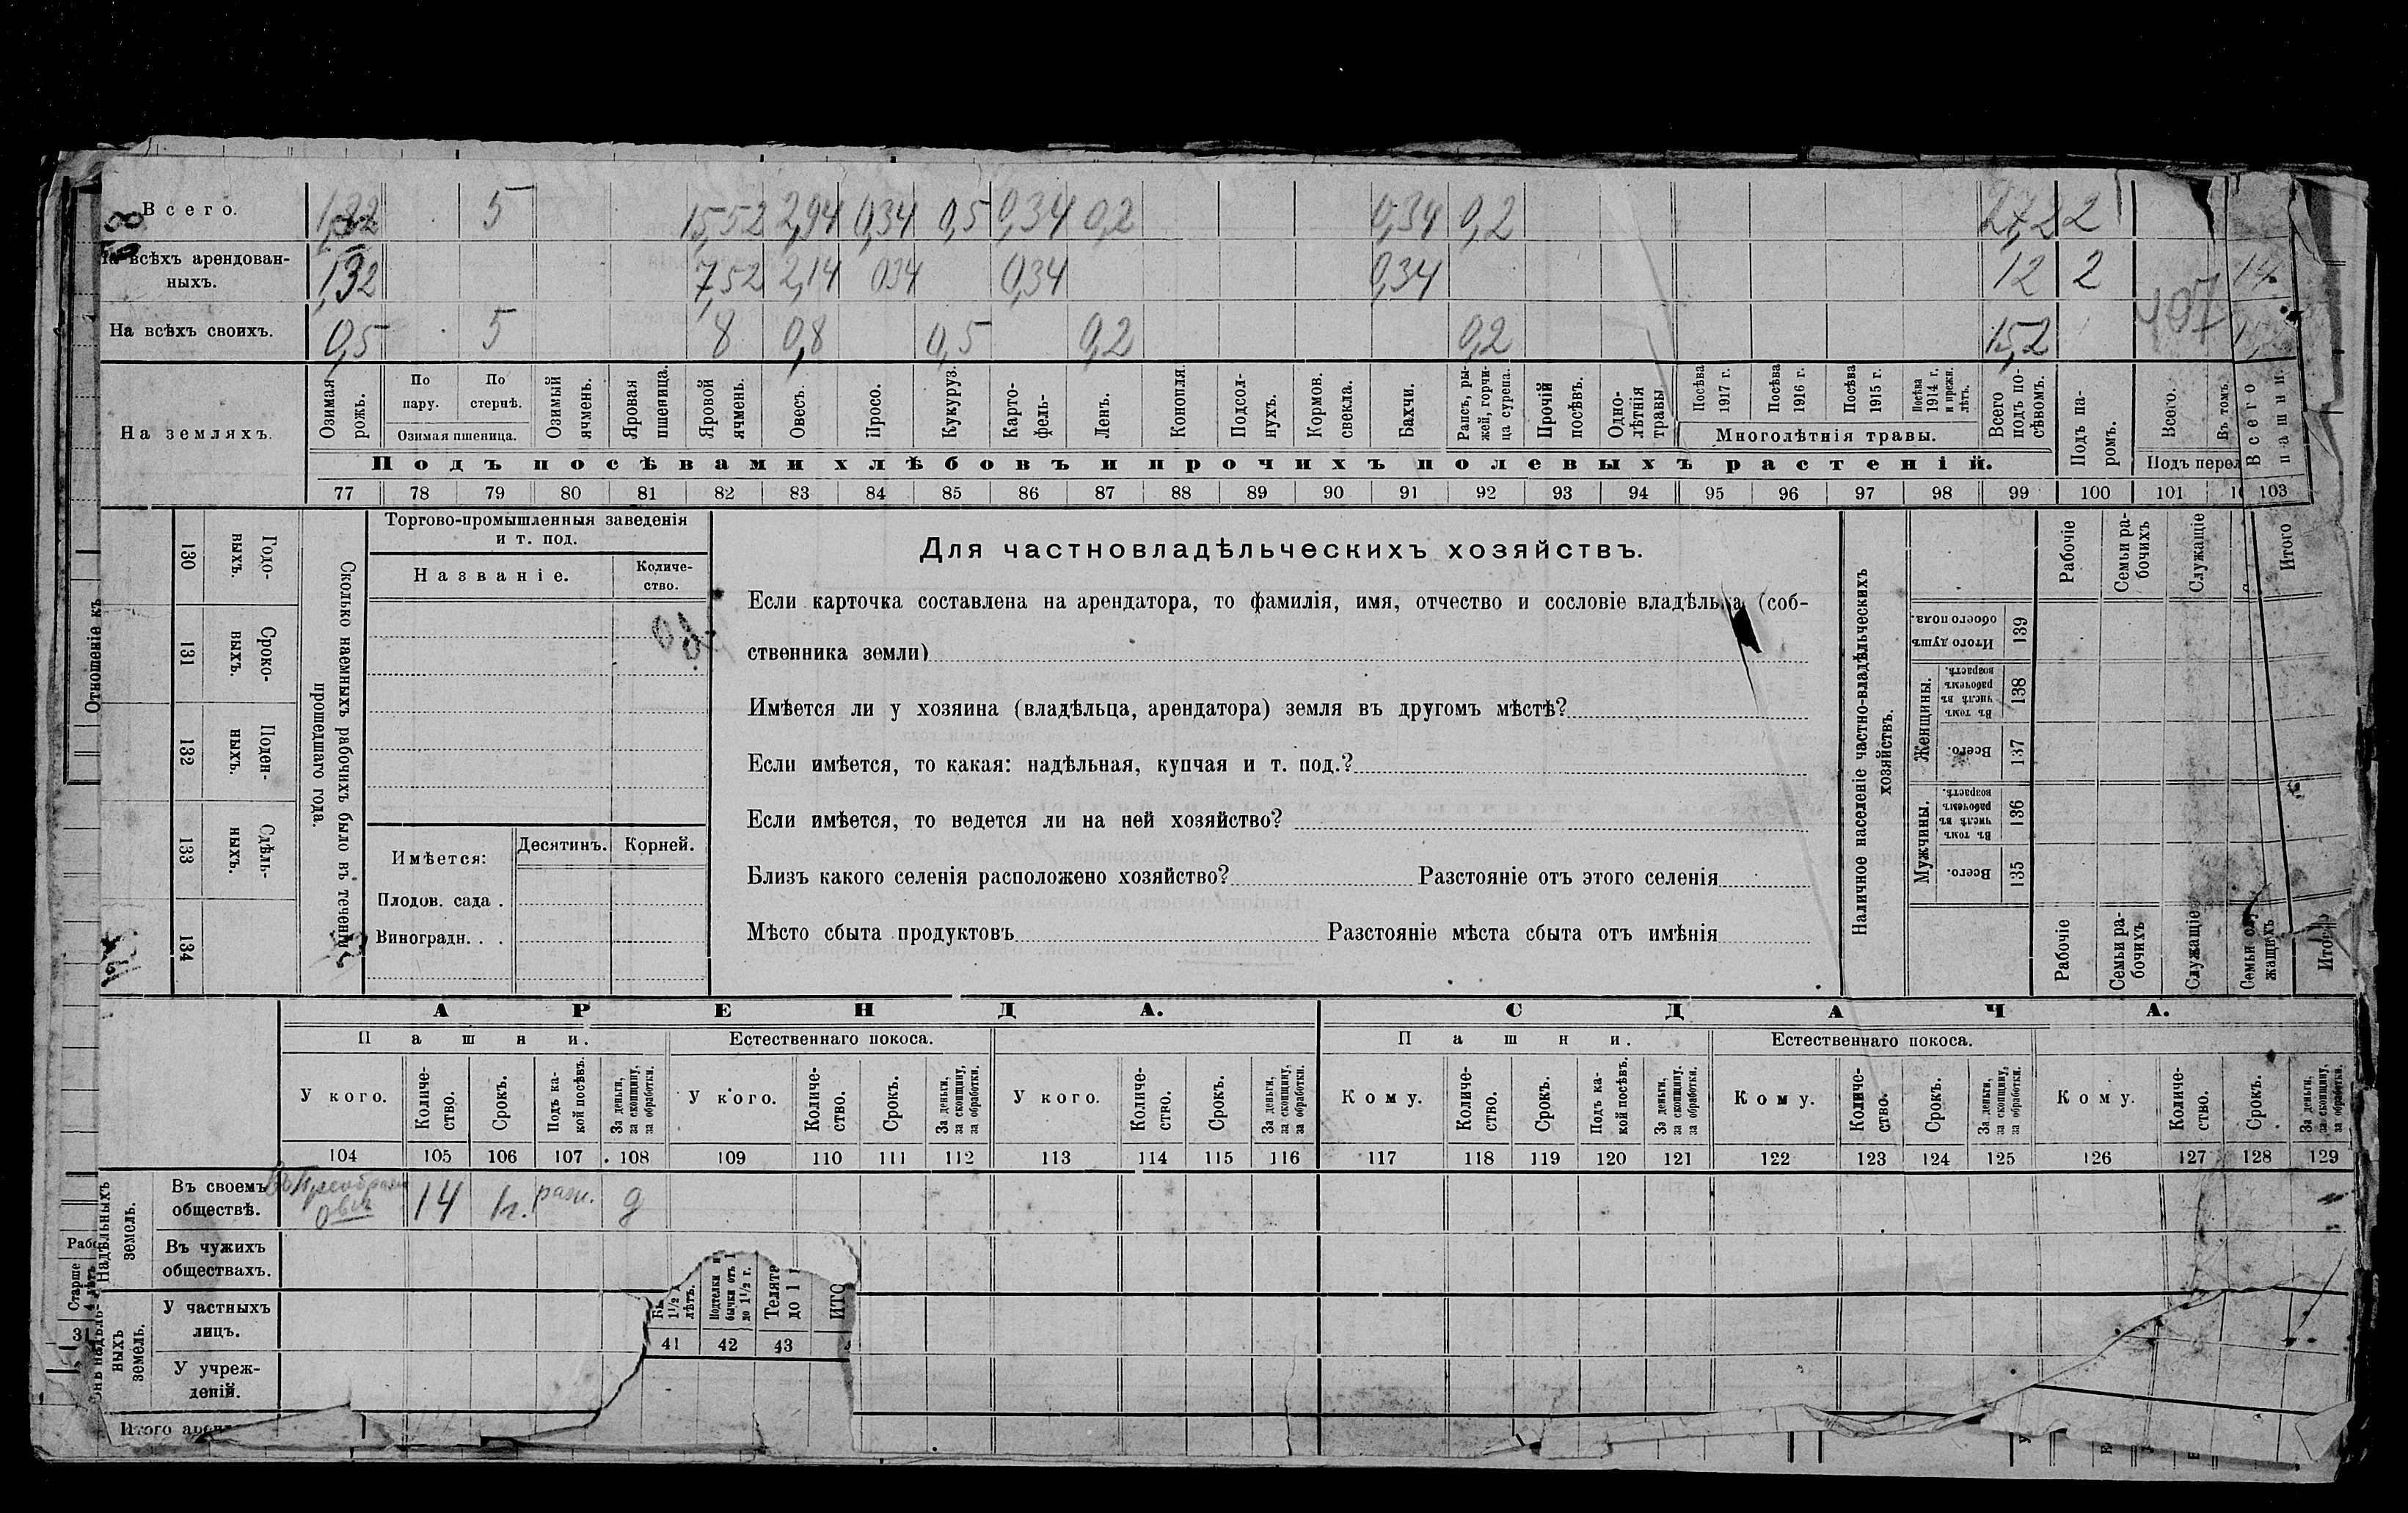 Всего. 5 15,52 2,94 0,34 0,5 0,34 0,2 0,34 0,2 2
На всѣхъ арендован-
ныхъ. 1,32 7,52 2,14 034 0,34 0,34 12 2
На всѣхъ своихъ. 0,5 5 8 0,8 0,5 0,2 0,2 15,2
107
На земляхъ.
Озимая рожь.
По пару.
По стернѣ.
Озимая пшеница.
Озимый ячмень.
Яровая пшеница.
Яровой ячмень.
Овесъ.
Просо.
Кукуруз.
Карто-
фель-
Ленъ.
Конопля.
Подсол-
нухъ.
Кормов.
свекла.
Бахчи.
Рапсъ, ры-
жей, горчи-
ца сурепа.
Прочій
посѣвъ.
Одно-
лѣтнія
травы
Посѣва
1917 г.
Посѣва
1916 г.
Посѣва
1915 г.
Посѣва
1914 г.
и прежн.
лѣтъ.
Многолѣтнія травы.
Всего
подъ по-
сѣвомъ.
Подъ па-
ромъ.
Всего.
Въ томъ
Подъ перел
Всего
пашни.
Подъ посѣвами хлѣбовъ и прочихъ полевыхъ растеній.
77 78 79 80 81 82 83 84 85 86 87 88 89 90 91 92 93 94 95 96 97 98 99 100 101 103
Отношеніе къ
130 131 132 133 134
Годо-
ныхъ.
Сроко-
ныхъ.
Поден-
ныхъ.
Сдѣль-
ныхъ.
Сколько наемныхъ рабочихъ было въ теченіи
прошедшаго года.
Торгово-промышленныя заведенія
и т. под.
Названіе.
Количе-
ство.
Имѣется:
Десятинъ.
Корней.
Плодов. сада .
Виноградн. . .
Для частновладѣльческихъ хозяйствъ.
Если карточка составлена на арендатора, то фамилія, имя, отчество и сословіе владѣльца (соб-
ственника земли)
Имѣется ли у хозяина (владѣльца, арендатора) земля въ другомъ мѣстѣ?
Если имѣется, то какая: надѣльная, купчая и т. под.?
Если имѣется, то ведется ли на ней хозяйство?
Близъ какого селенія расположено хозяйство? Разстояніе отъ этого селенія
Мѣсто сбыта продуктовъ Разстояніе мѣста сбыта отъ имѣнія
Наличное населеніе частно-владѣльческихъ
хозяйствъ.
Рабочіе
Семьи ра-
бочихъ
Служащіе
Итого
Итого душъ
обоего пола.
139
Женщины.
Въ томъ
числѣ въ
рабочемъ
возрастѣ.
138
Всего.
137
Мужчины.
Въ томъ
числѣ въ
рабочемъ
возрастѣ.
136
Всего.
135
Рабочіе
Семьи ра-
бочихъ
Служащіе
Семьи слу
жащихъ
Итого
АРЕНДА. СДАЧА.
Пашни. Естественнаго покоса. Пашни. Естественнаго покоса.
У кого.
Количе-
ство.
Срокъ.
Подъ ка-
кой посѣвъ.
За деньги,
за скопщину,
за обработки.
У кого.
Количе-
ство.
Срокъ.
За деньги,
за скопщину,
за обработки.
У кого.
Количе-
ство.
Срокъ.
За деньги,
за скопщину,
за обработки.
Кому.
Количе-
ство.
Срокъ.
Подъ ка-
кой посѣвъ.
За деньги,
за скопщину,
за обработки.
Кому.
Количе-
ство.
Срокъ.
За деньги,
за скопщину,
за обработки.
Кому.
Количе-
ство.
Срокъ.
За деньги,
за скопщину,
за обработки.
104 105 106 107 108 109 110 111 112 113 114 115 116 117 118 119 120 121 122 123 124 125 126 127 128 129
Надѣльныхъ
земель.
Въ своемъ
обществѣ.
14 1 г. разн. д
Въ чужихъ
обществахъ.
У частныхъ
лицъ.
У учреж-
деній.
ныхъ
земель.
Старше
4 лѣтъ
31
1½
лѣтъ.
Подтелки и
бычки отъ 1
до 1½ г.
Телята
до 1 г
ИТО
41 42 43
Итого